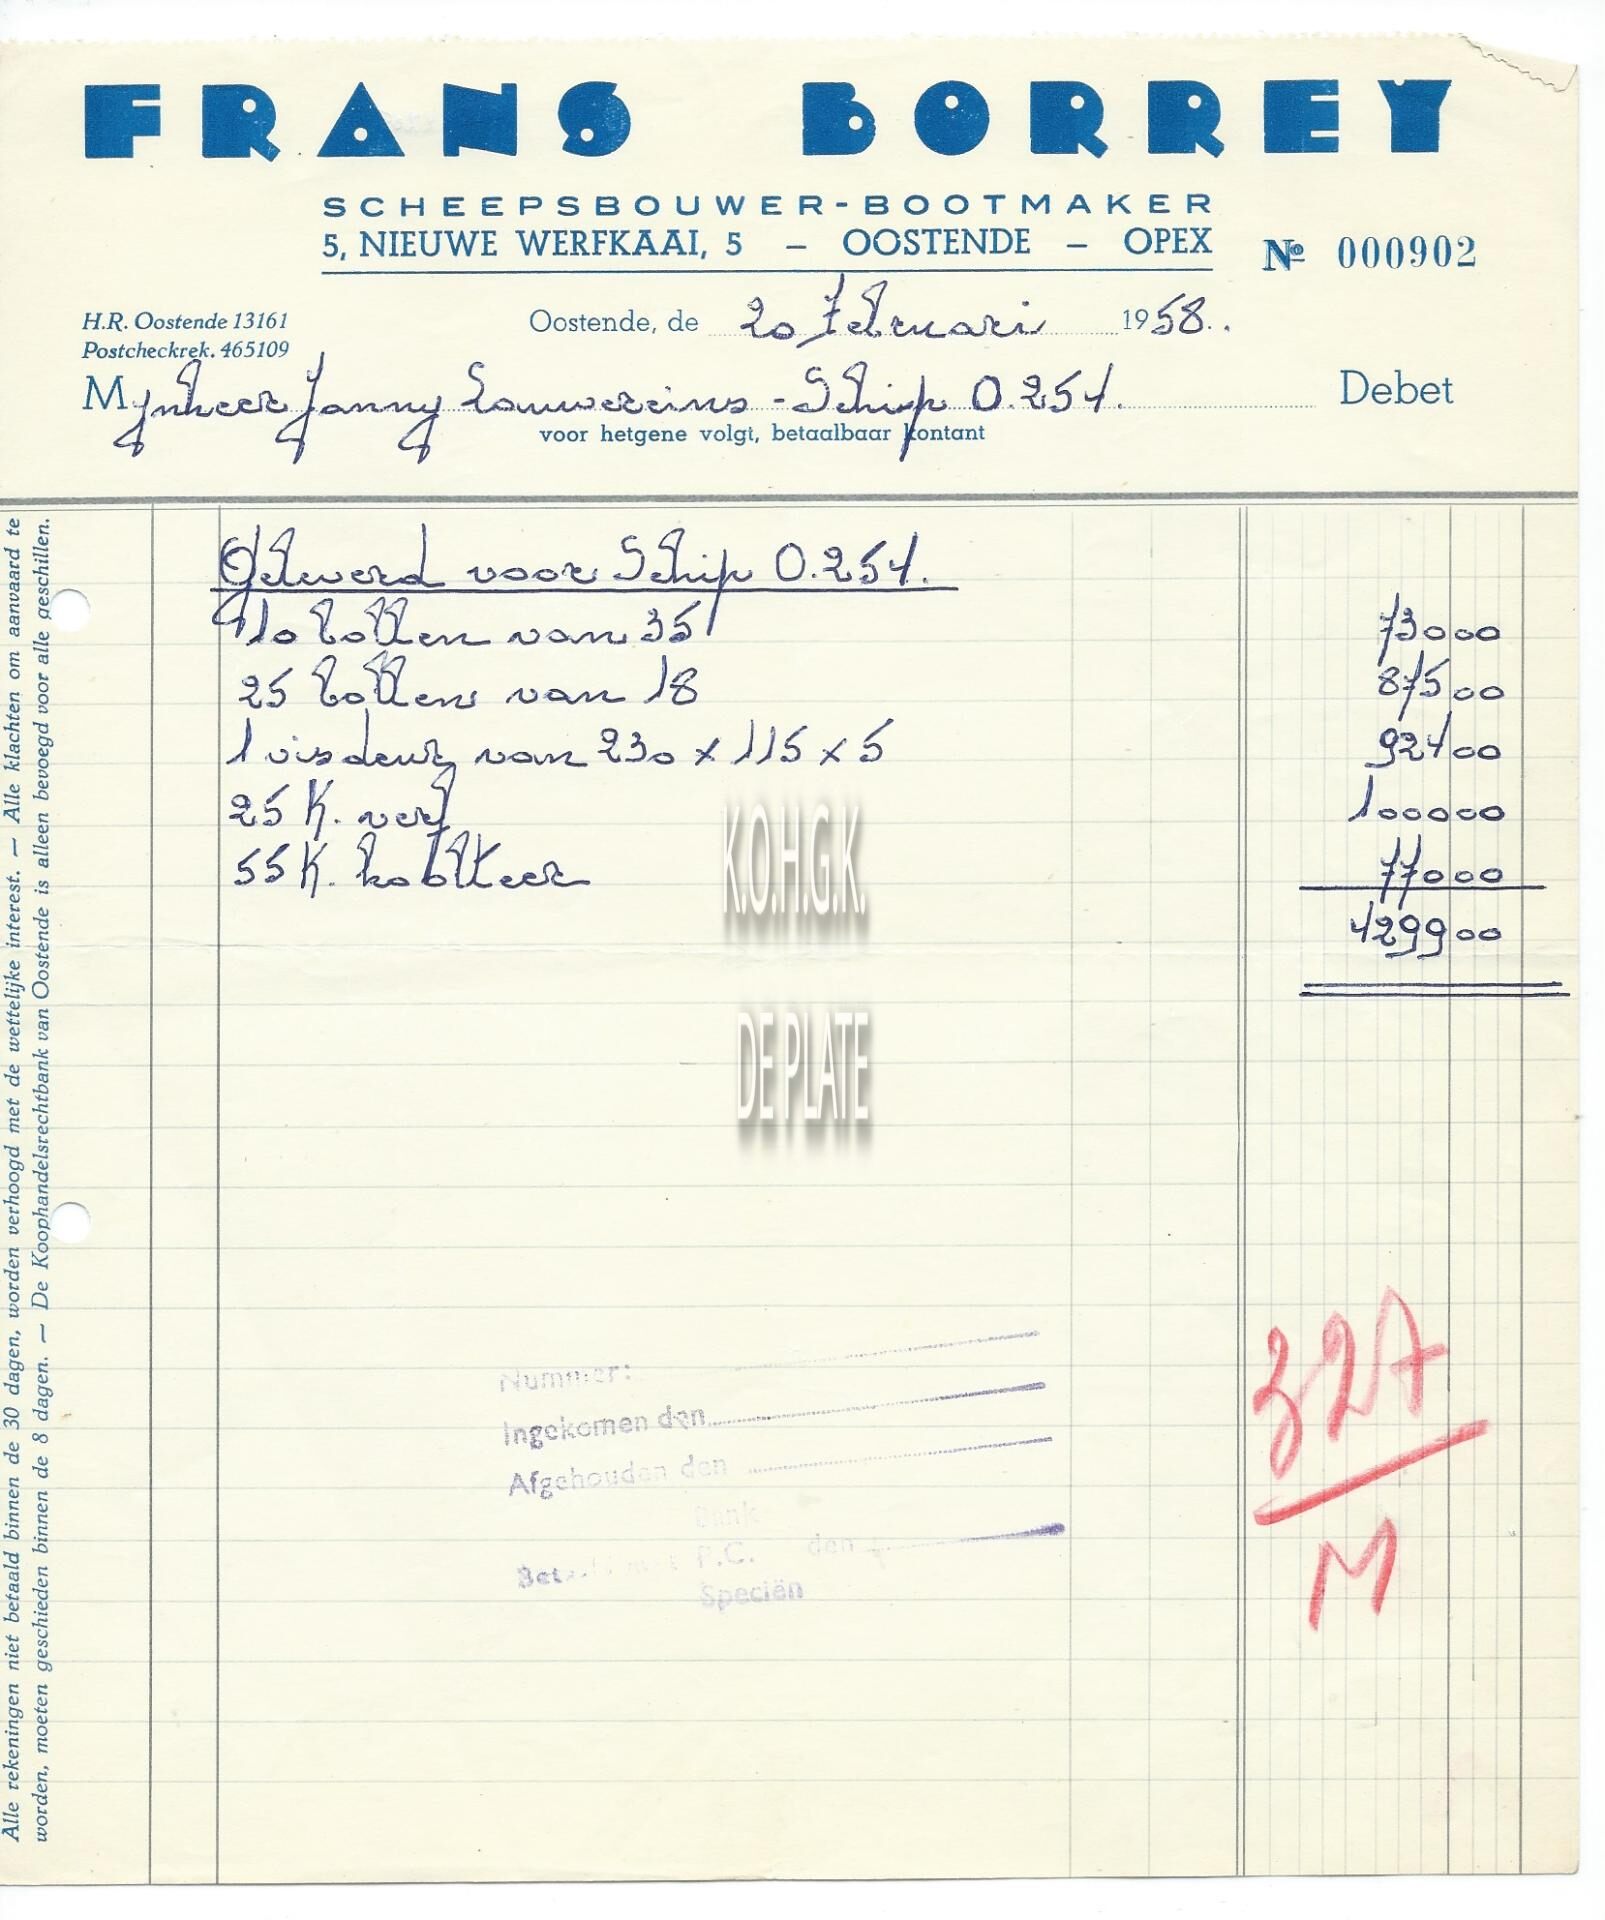 FRANS BORREY
SCHEEPSBOUWER-BOOTMAKER
5, NIEUWE WERFKAAI, 5 — OOSTENDE — OPEX
Nº 000902
H.R. Oostende 13161
Postcheckrek. 465109
Oostende, de 20 Februari 1958.
Mynheer Janny Lauwereins - Schip O.254. Debet
voor hetgene volgt, betaalbaar kontant
Alle rekeningen niet betaald binnen de 30 dagen, worden verhoogd met de wettelijke interest. — Alle klachten om aanvaard te
worden, moeten geschieden binnen de 8 dagen. — De Koophandelsrechtbank van Oostende is alleen bevoegd voor alle geschillen.
Gelewerd voor Schip O.254.
10 bollen van 35 73000
25 bollen van 18 87500
1 visdeur van 230 x 115 x 5 92400
25 K. verf 100000
55 K. koolteer 77000
429900
K.O.H.G.K.
DE PLATE
Nummer:
Ingekomen den
Afgehouden den
Bank
Betaald met P.C. den
Speciën
327
M